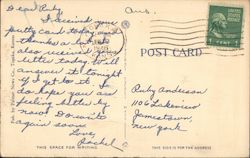 Dear Ruby
Ans.
I received your
pretty card today and
thanks a lot. I
also received your
letter today. Will
answer it tonight
if I get to it. I
do hope you are
feeling better by
now. Do write
again soon.
Love,
POST CARD
Ruby Anderson
1106 Lakeview
Jamestown,
New York
THIS SPACE FOR WRITING
THIS SIDE IS FOR THE ADDRESS